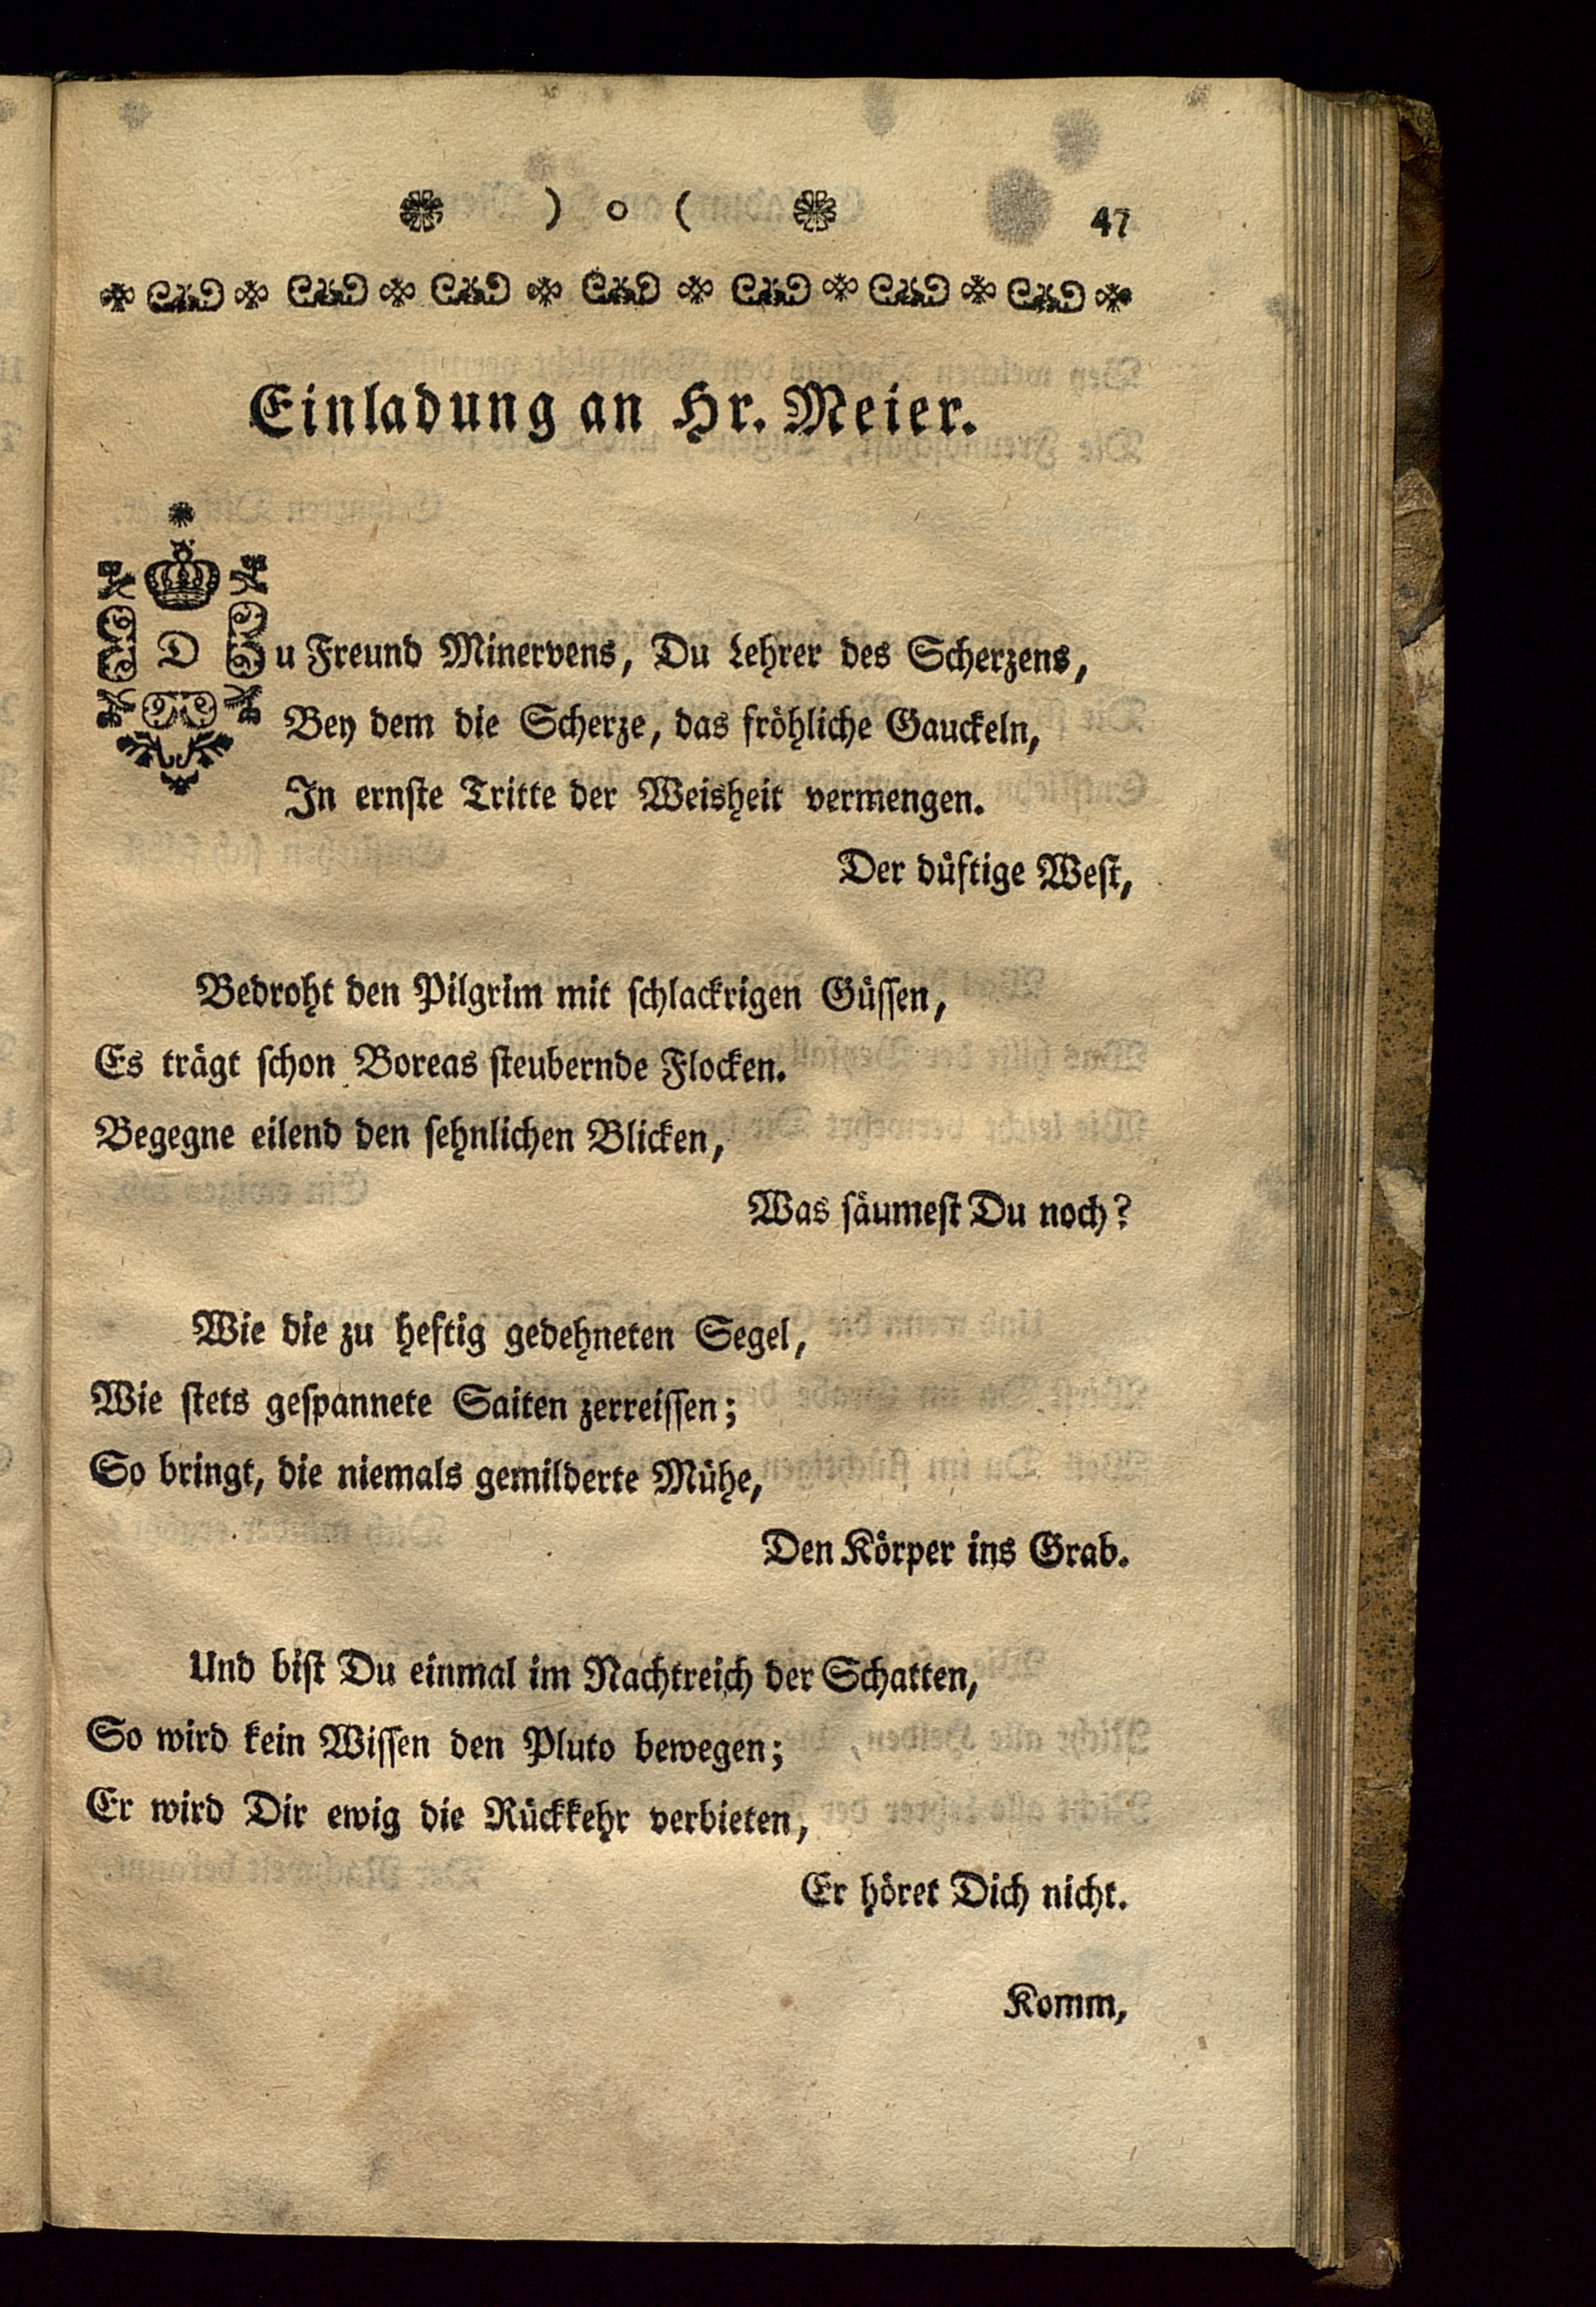 ) o ( 47
Einladung an Hr. Meier.
Du Freund Minervens, Du Lehrer des Scherzens,
Bey dem die Scherze, das fröhliche Gauckeln,
In ernste Tritte der Weisheit vermengen.
Der düftige West,
Bedroht den Pilgrim mit schlackrigen Güssen,
Es trägt schon Boreas steubernde Flocken.
Begegne eilend den sehnlichen Blicken,
Was säumest Du noch?
Wie die zu heftig gedehneten Segel,
Wie stets gespannete Saiten zerreissen;
So bringt, die niemals gemilderte Mühe,
Den Körper ins Grab.
Und bist Du einmal im Nachtreich der Schatten,
So wird kein Wissen den Pluto bewegen;
Er wird Dir ewig die Rückkehr verbieten,
Er höret Dich nicht.
Komm,